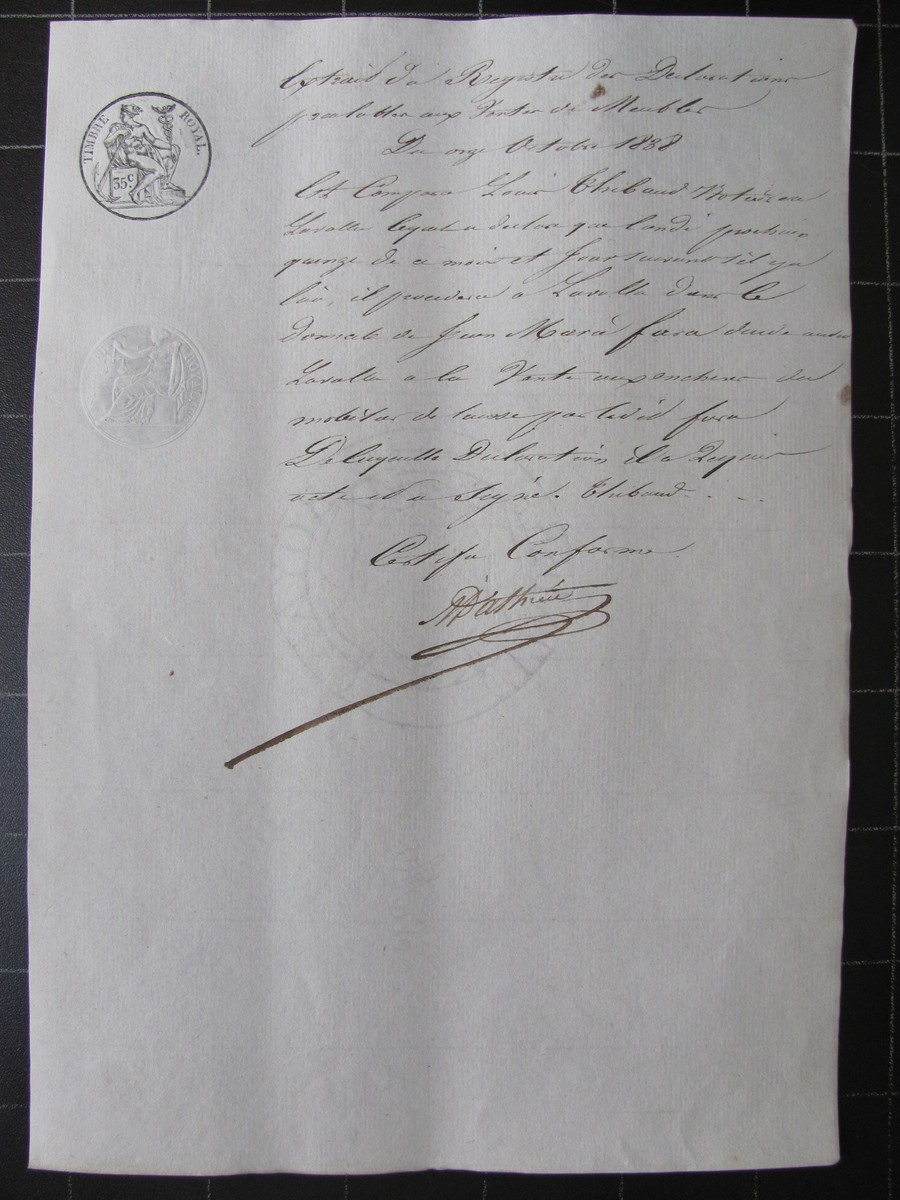 TIMBRE ROYAL.
35c.
Extrait du Registre des Declarations
prealables aux Ventes de Meubles
Du onze Octobre 1838
Est Comparu Louis Thibaud Notaire a
Lavalla lequel a declaré que lundi prochain
quinze de ce mois et jours suivants s'il y a
lieu, il procedera a Lavalla dans le
domicile de Jean Marie fara decede audit
Lavalla a la Vente aux encheres du
mobilier delaissé par ledit fara
De laquelle Declaration il a Requis
acte et a Signé. Thibaud
Certifié Conforme